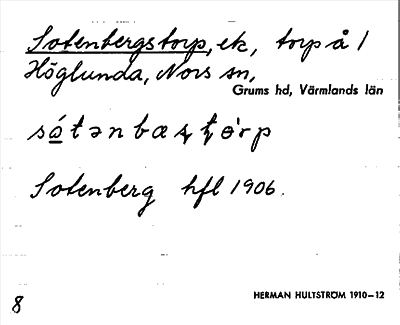 Sotenbergstorp, ek, torp å 1
Höglunda, Nors sn,
Grums hd, Värmlands län
Sotenberg hfl 1906.
HERMAN HULTSTRÖM 1910–12
8